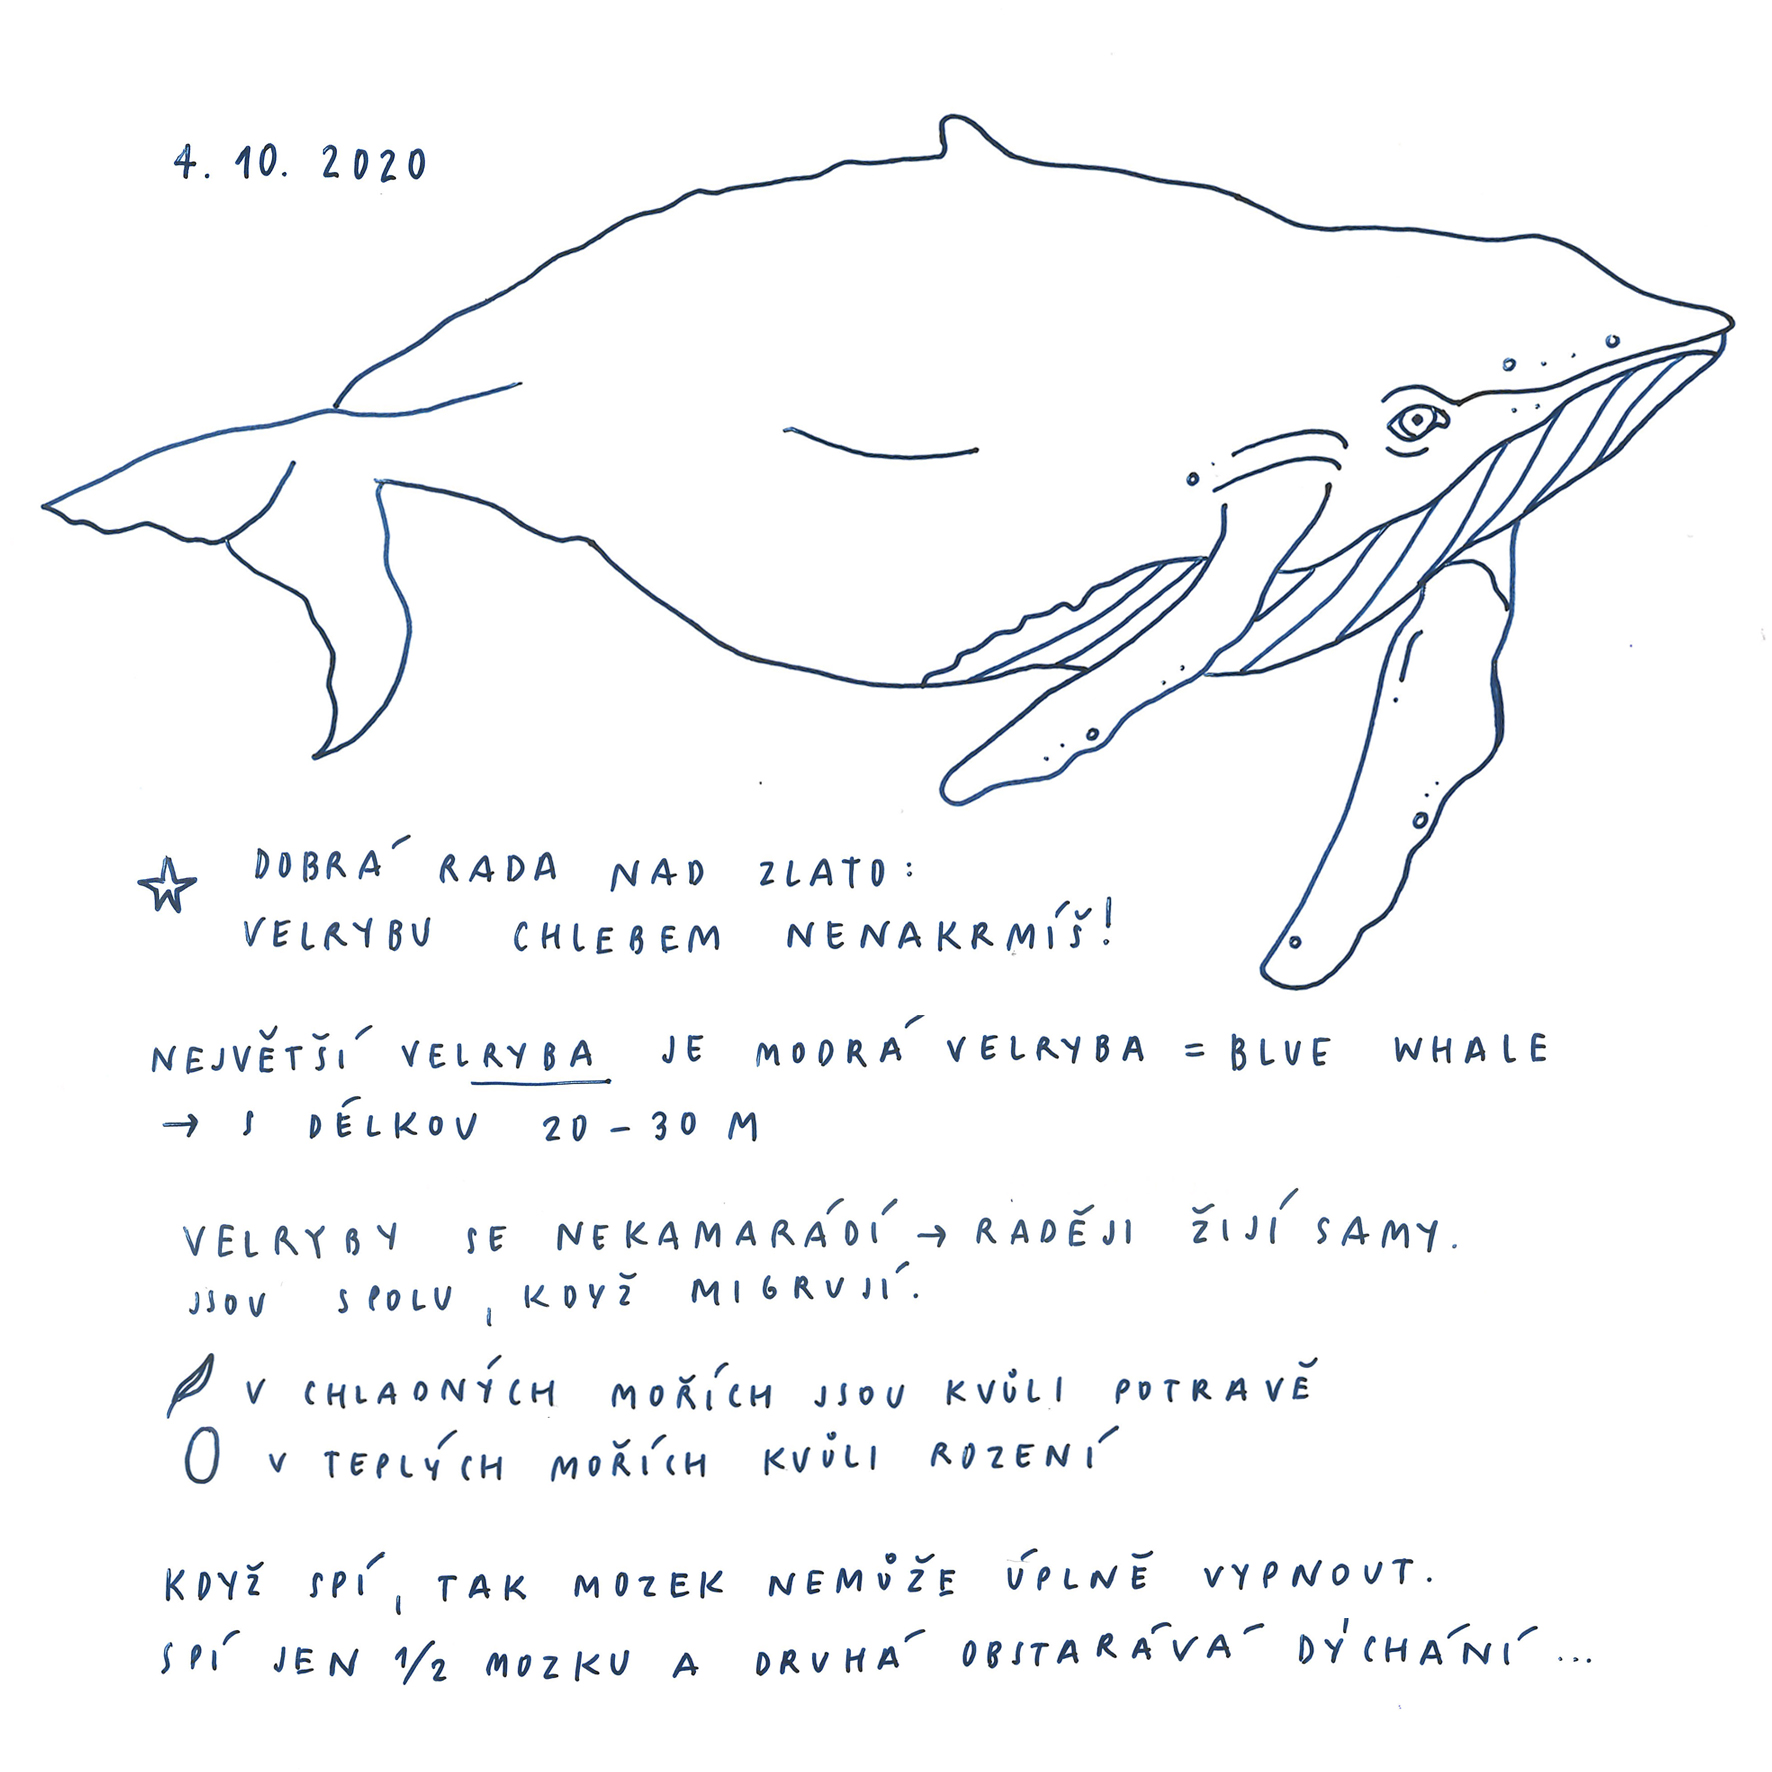 4. 10. 2020
DOBRÁ RADA NAD ZLATO:
VELRYBU CHLEBEM NENAKRMÍŠ!
NEJVĚTŠÍ VELRYBA JE MODRÁ VELRYBA = BLUE WHALE
→ S DÉLKOU 20 – 30 M
VELRYBY SE NEKAMARÁDÍ → RADĚJI ŽIJÍ SAMY.
JSOU SPOLU, KDYŽ MIGRUJÍ.
V CHLADNÝCH MOŘÍCH JSOU KVŮLI POTRAVĚ
V TEPLÝCH MOŘÍCH KVŮLI ROZENÍ
KDYŽ SPÍ, TAK MOZEK NEMŮŽE ÚPLNĚ VYPNOUT.
SPÍ JEN 1/2 MOZKU A DRUHÁ OBSTARÁVÁ DÝCHÁNÍ...